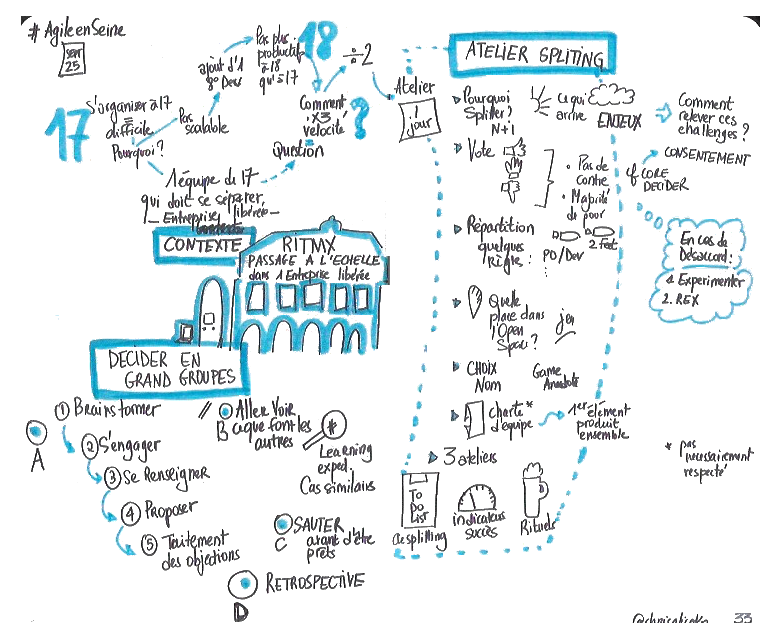 # AgileenSeine
25
17
S'organiser à 17
difficile
Pourquoi?
Pas
scalable
ajout d'1
8° Dev
Pas plus
productif
à 18
qu'à 17
18
÷2
Comment
X3
vélocité
?
Question
1 équipe du 17
qui doit se séparer
Entreprise libérée
CONTEXTE
RITMX
PASSAGE A L'ECHELLE
dans 1 Entreprise libérée
DECIDER EN
GRAND GROUPES
A
1 Brainstormer
2 S'engager
3 Se Renseigner
4 Proposer
5 Traitement
des objections
// Aller Voir
B ce que font les
autres
*
Learning
exped.
Cas similaires
SAUTER
C avant d'être
prêts
RETROSPECTIVE
D
Atelier
1
jour
ATELIER SPLITING
Pourquoi
Splitter?
N+1
Ce qui
arrive
ENJEUX
Comment
relever ces
challenges?
Vote
• Pas de
contre
• Majorité
de pour
CORE
DECIDER
CONSENTEMENT
Répartition
quelques
Règles:
2 Feat
PO/Dev
En cas de
Désaccord:
1 Experimenter
2. REX
Quelle
place dans
l'Open
Space?
jeu
CHOIX
Nom
Game
charte*
d'équipe
1er élément
produit
ensemble
* pas
nécessairement
respecté
3 ateliers
TO
DO
LIST
de splitting
indicateurs
succès
Rituels
33